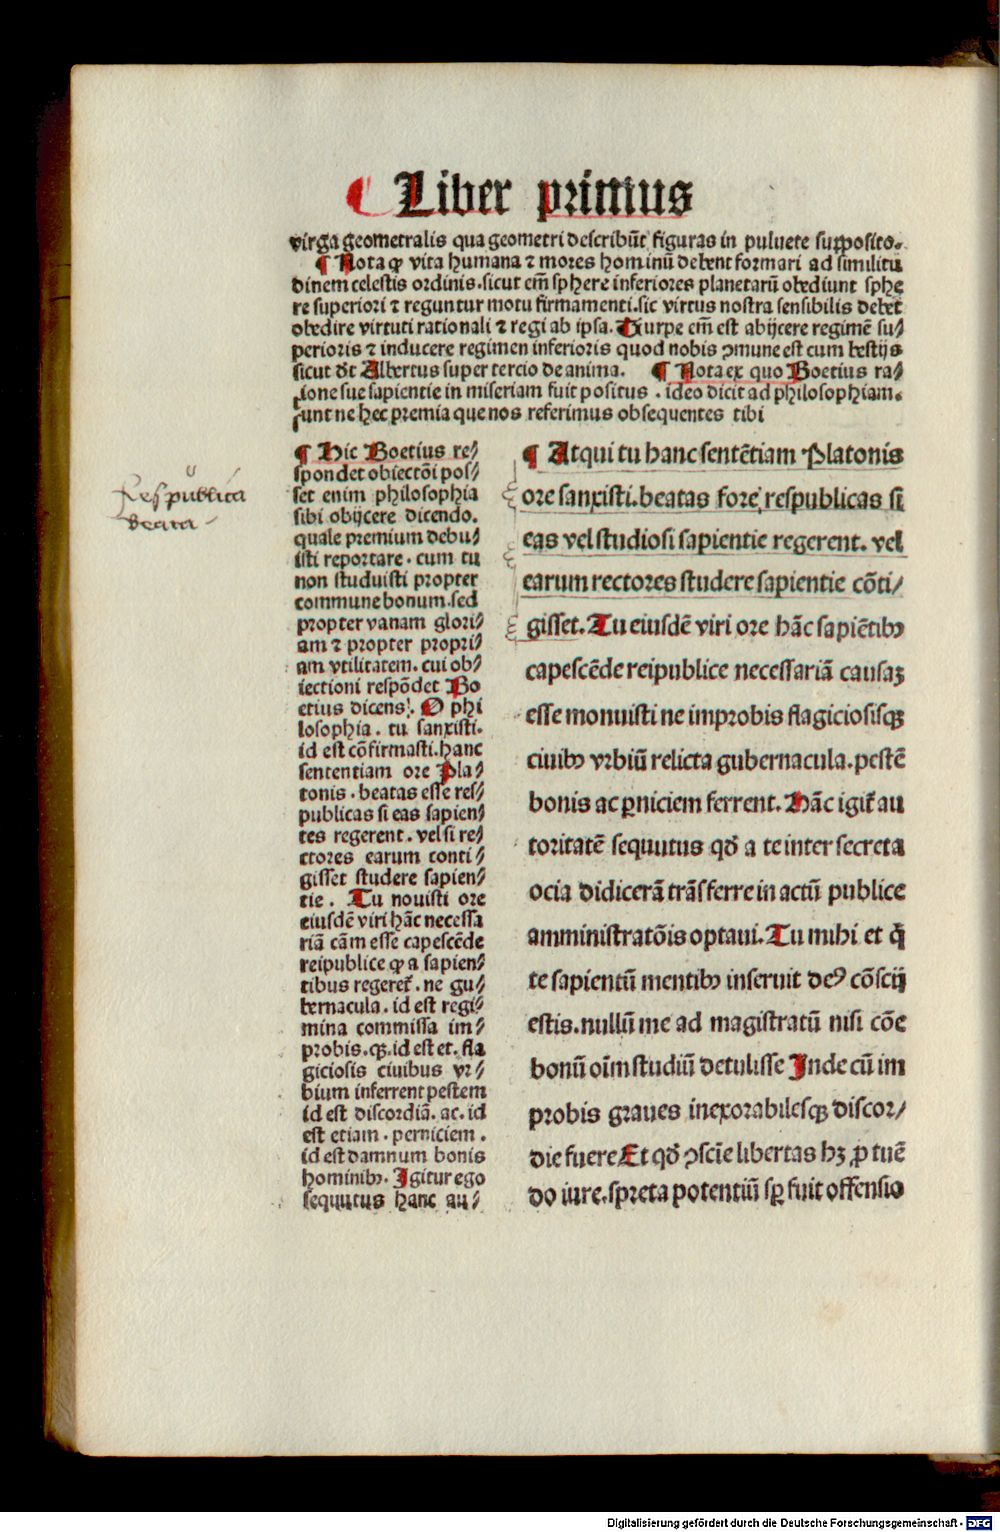 ¶ Liber primus
virga geometralis qua geometri describūt figuras in puluere supposito.
¶ Nota ꝙ vita humana ⁊ mores hominū debent formari ad similitu
dinem celestis ordinis. sicut em̄ sphere inferiores planetarū obediunt sphe
re superiori ⁊ reguntur motu firmamenti. sic virtus nostra sensibilis debet
obedire virtuti rationali ⁊ regi ab ipsa. Turpe em̄ est abijcere regimē su⸗
perioris ⁊ inducere regimen inferioris quod nobis ꝯmune est cum bestijs
sicut dt̄ Albertus super tercio de anima. ¶ Nota ex quo Boetius ra⸗
tione sue sapientie in miseriam fuit positus . ideo dicit ad philosophiam.
sunt ne hec premia que nos referimus obsequentes tibi
Respublica
beata
¶ Hic Boetius re⸗
spondet obiectōi pos⸗
set enim philosophia
sibi obijcere dicendo.
quale premium debu⸗
isti reportare . cum tu
non studuisti propter
commune bonum. sed
propter vanam glori⸗
am ⁊ propter propri⸗
am vtilitatem. cui ob⸗
iectioni respōdet Bo
etius dicens. O phi
losophia. tu sanxisti.
id est cōfirmasti. hanc
sententiam ore Pla⸗
tonis . beatas esse res⸗
publicas si eas sapien⸗
tes regerent . vel si re⸗
ctores earum conti⸗
gisset studere sapien⸗
tie . Tu nouisti ore
eiusdē viri hāc necessa
riā cām esse capescēde
reipublice ꝙ a sapien⸗
tibus regeret̄ . ne gu⸗
bernacula. id est regi⸗
mina commissa im⸗
probis. qꝫ. id est et. fla
giciosis ciuibus vr⸗
bium inferrent pestem
id est discordiā. ac. id
est etiam . perniciem .
id est damnum bonis
hominibꝰ. Igitur ego
sequutus hanc au⸗
¶ Atqui tu hanc sentētiam Platonis
ore sanxisti. beatas fore respublicas si
eas vel studiosi sapientie regerent. vel
earum rectores studere sapientie cōti⸗
gisset. Tu eiusdē viri ore hāc sapiētibꝰ
capescēde reipublice necessariā causaꝫ
esse monuisti ne improbis flagiciosisqꝫ
ciuibꝰ vrbiū relicta gubernacula. pestē
bonis ac ꝑniciem ferrent. Hāc igit̄ au
toritatē sequutus qđ a te inter secreta
ocia didicerā trāsferre in actū publice
amministratōis optaui. Tu mihi et q̄
te sapientū mentibꝰ inseruit deꝰ cōscij
estis. nullū me ad magistratū nisi cōe
bonū oīm studiū detulisse Inde cū im
probis graues inexorabilesqꝫ discor⸗
die fuere Et qđ ꝯscīe libertas hꝫ ꝓ tuē
do iure. spreta potentiū sꝑ fuit offensio
Digitalisierung gefördert durch die Deutsche Forschungsgemeinschaft - DFG